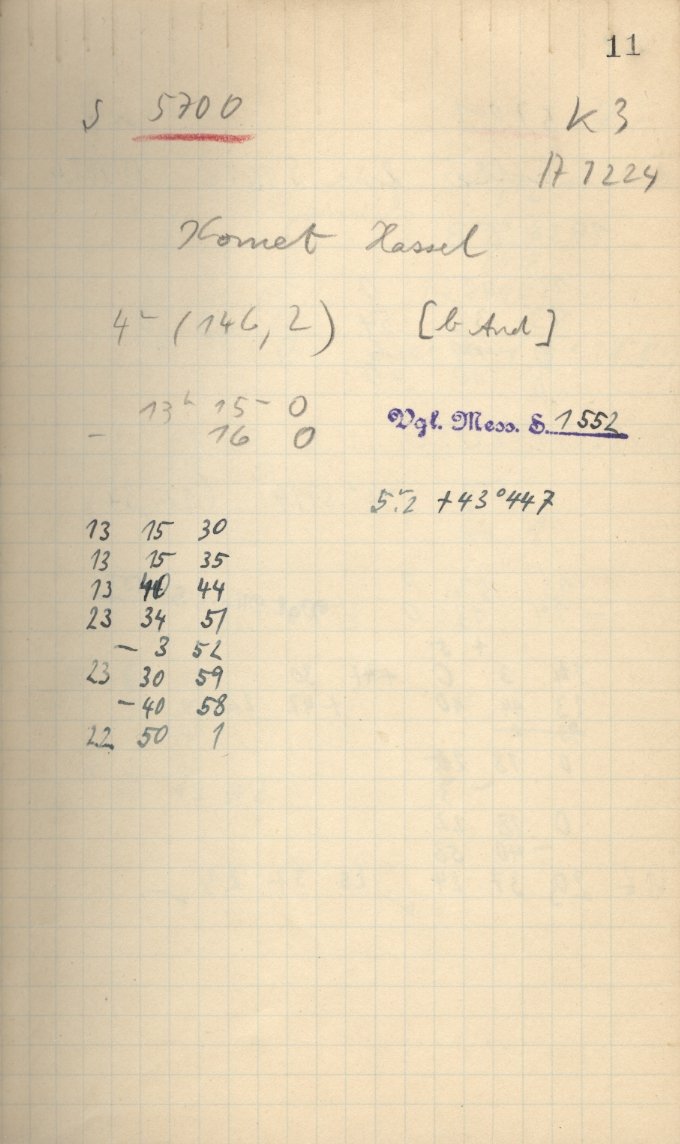 11
S 5700
K 3
A 1224
Komet Hassel
4m (146, 2) [b And]
13h 15m 0
- 16 0
Vgl. Mess. S. 1552
5m.2 +43°447
13 15 30
13 15 35
13 40 44
23 34 51
- 3 52
23 30 59
- 40 58
22 50 1